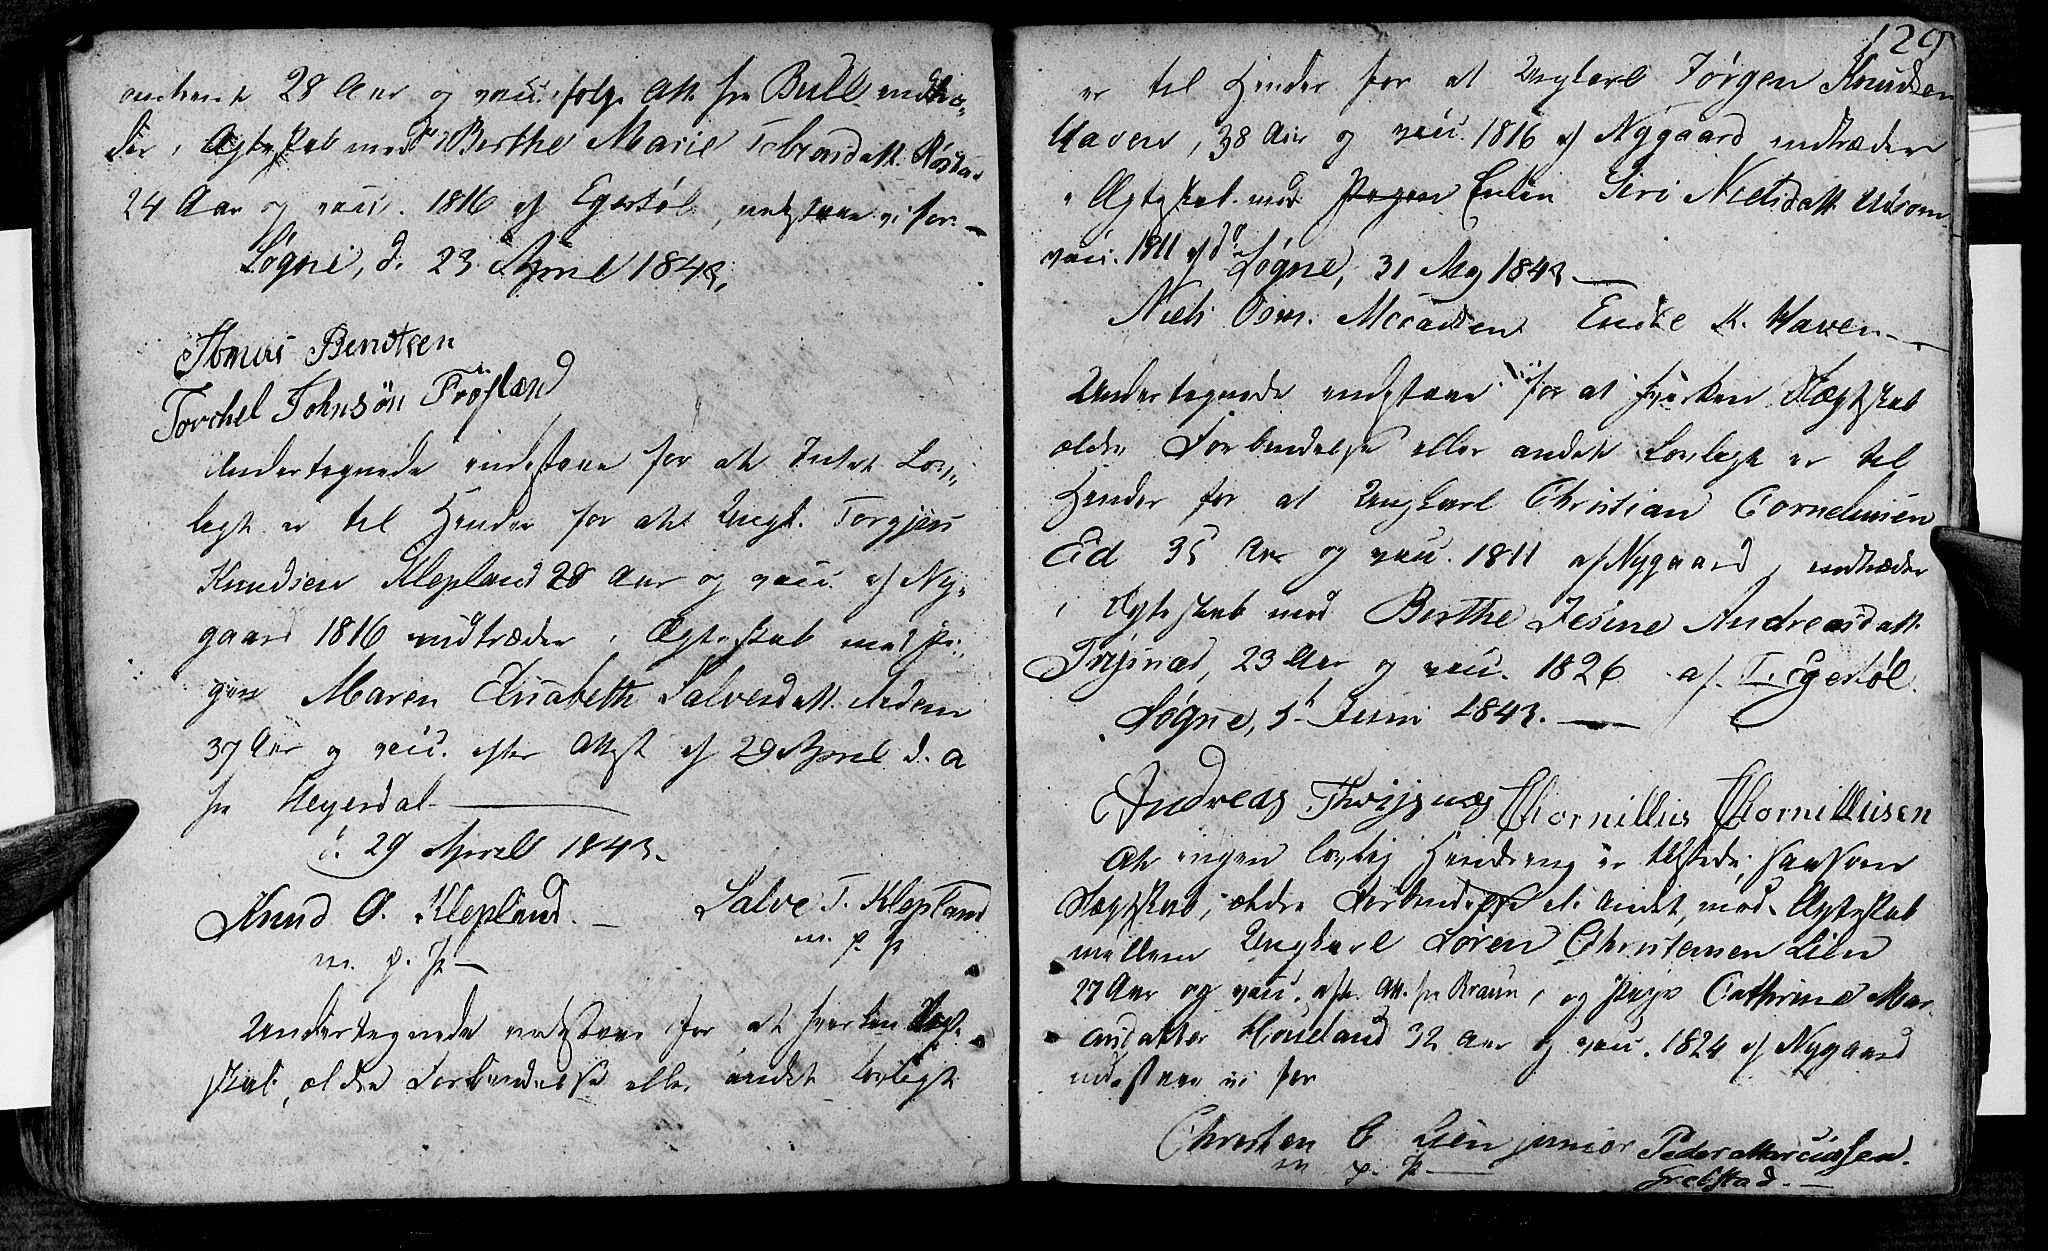 28 Aar og vacc. følge Att. fra Bull indtræ-
der i Ægteskab med Berthe Marie Tobiasdatt.
24 Aar og vacc. 1816 af Egestøl, indestaae vi for. —
Søgne, d. 23 April 1843.
Thomas Bendtsen
Torchel Johnsön Fröslænd
Undertegnede indestaae for at Intet Lov-
ligt er til Hinder for at Ungk. Torgjus
Knudsen Klepland 28 Aar og vacc. af Ny-
gaard 1816 indtræder i Ægteskab med Pi-
gen Maren Elisabeth Salvesdatt.
37 Aar og vacc. efter Attest af 29 April d. A
fra Heyerdal —
d. 29 April 1843.
Knud O. Klepland. —
m. p. P. —
Salve T. Klepland
m. p. P.
Undertegnede indestaae for at hverken Slægt-
skab, ældre Forbindelse eller andet lovligt
129
er til Hinder for at Ungkarl Jørgen Knudsen
Haven, 38 Aar og vacc. 1816 af Nygaard indtræder
i Ægteskab med Pigen Enken Siri Nielsdatt.
vacc. 1811 af do Søgne, 31 May 1843 —
Niels Endre K. Haven —
Undertegnede indestaae vi for at hverken Slægtskab
ældre Forbindelse eller andet Lovligt er til
Hinder for at Ungkarl Christian Corneliusen
Eid 35 Aar og vacc. 1811 af Nygaard, indtræder
i Ægteskab med Berthe Jesine Andreasdatt.
Trysnæs, 23 Aar og vacc. 1826 af T. Egestøl.
Søgne, 5t Juni 1843. —
Andreas Thrysnæs Chornillius Chornilliusen
At ingen lovlig Hindring er tilstede, saasom
Slægtskab, ældre Forbindelse el. andet, mod Ægteskab
mellem Ungkarl Søren Christensen Lien
27 Aar og vacc. efter Att. fra Braun, og Pige Cathrine Mar-
cusdatter Houeland 32 Aar og vacc. 1824 af Nygaard
indestaae vi for
Christen O Lien junior Peder Marcussen.
m p. P. — Grebstad. —